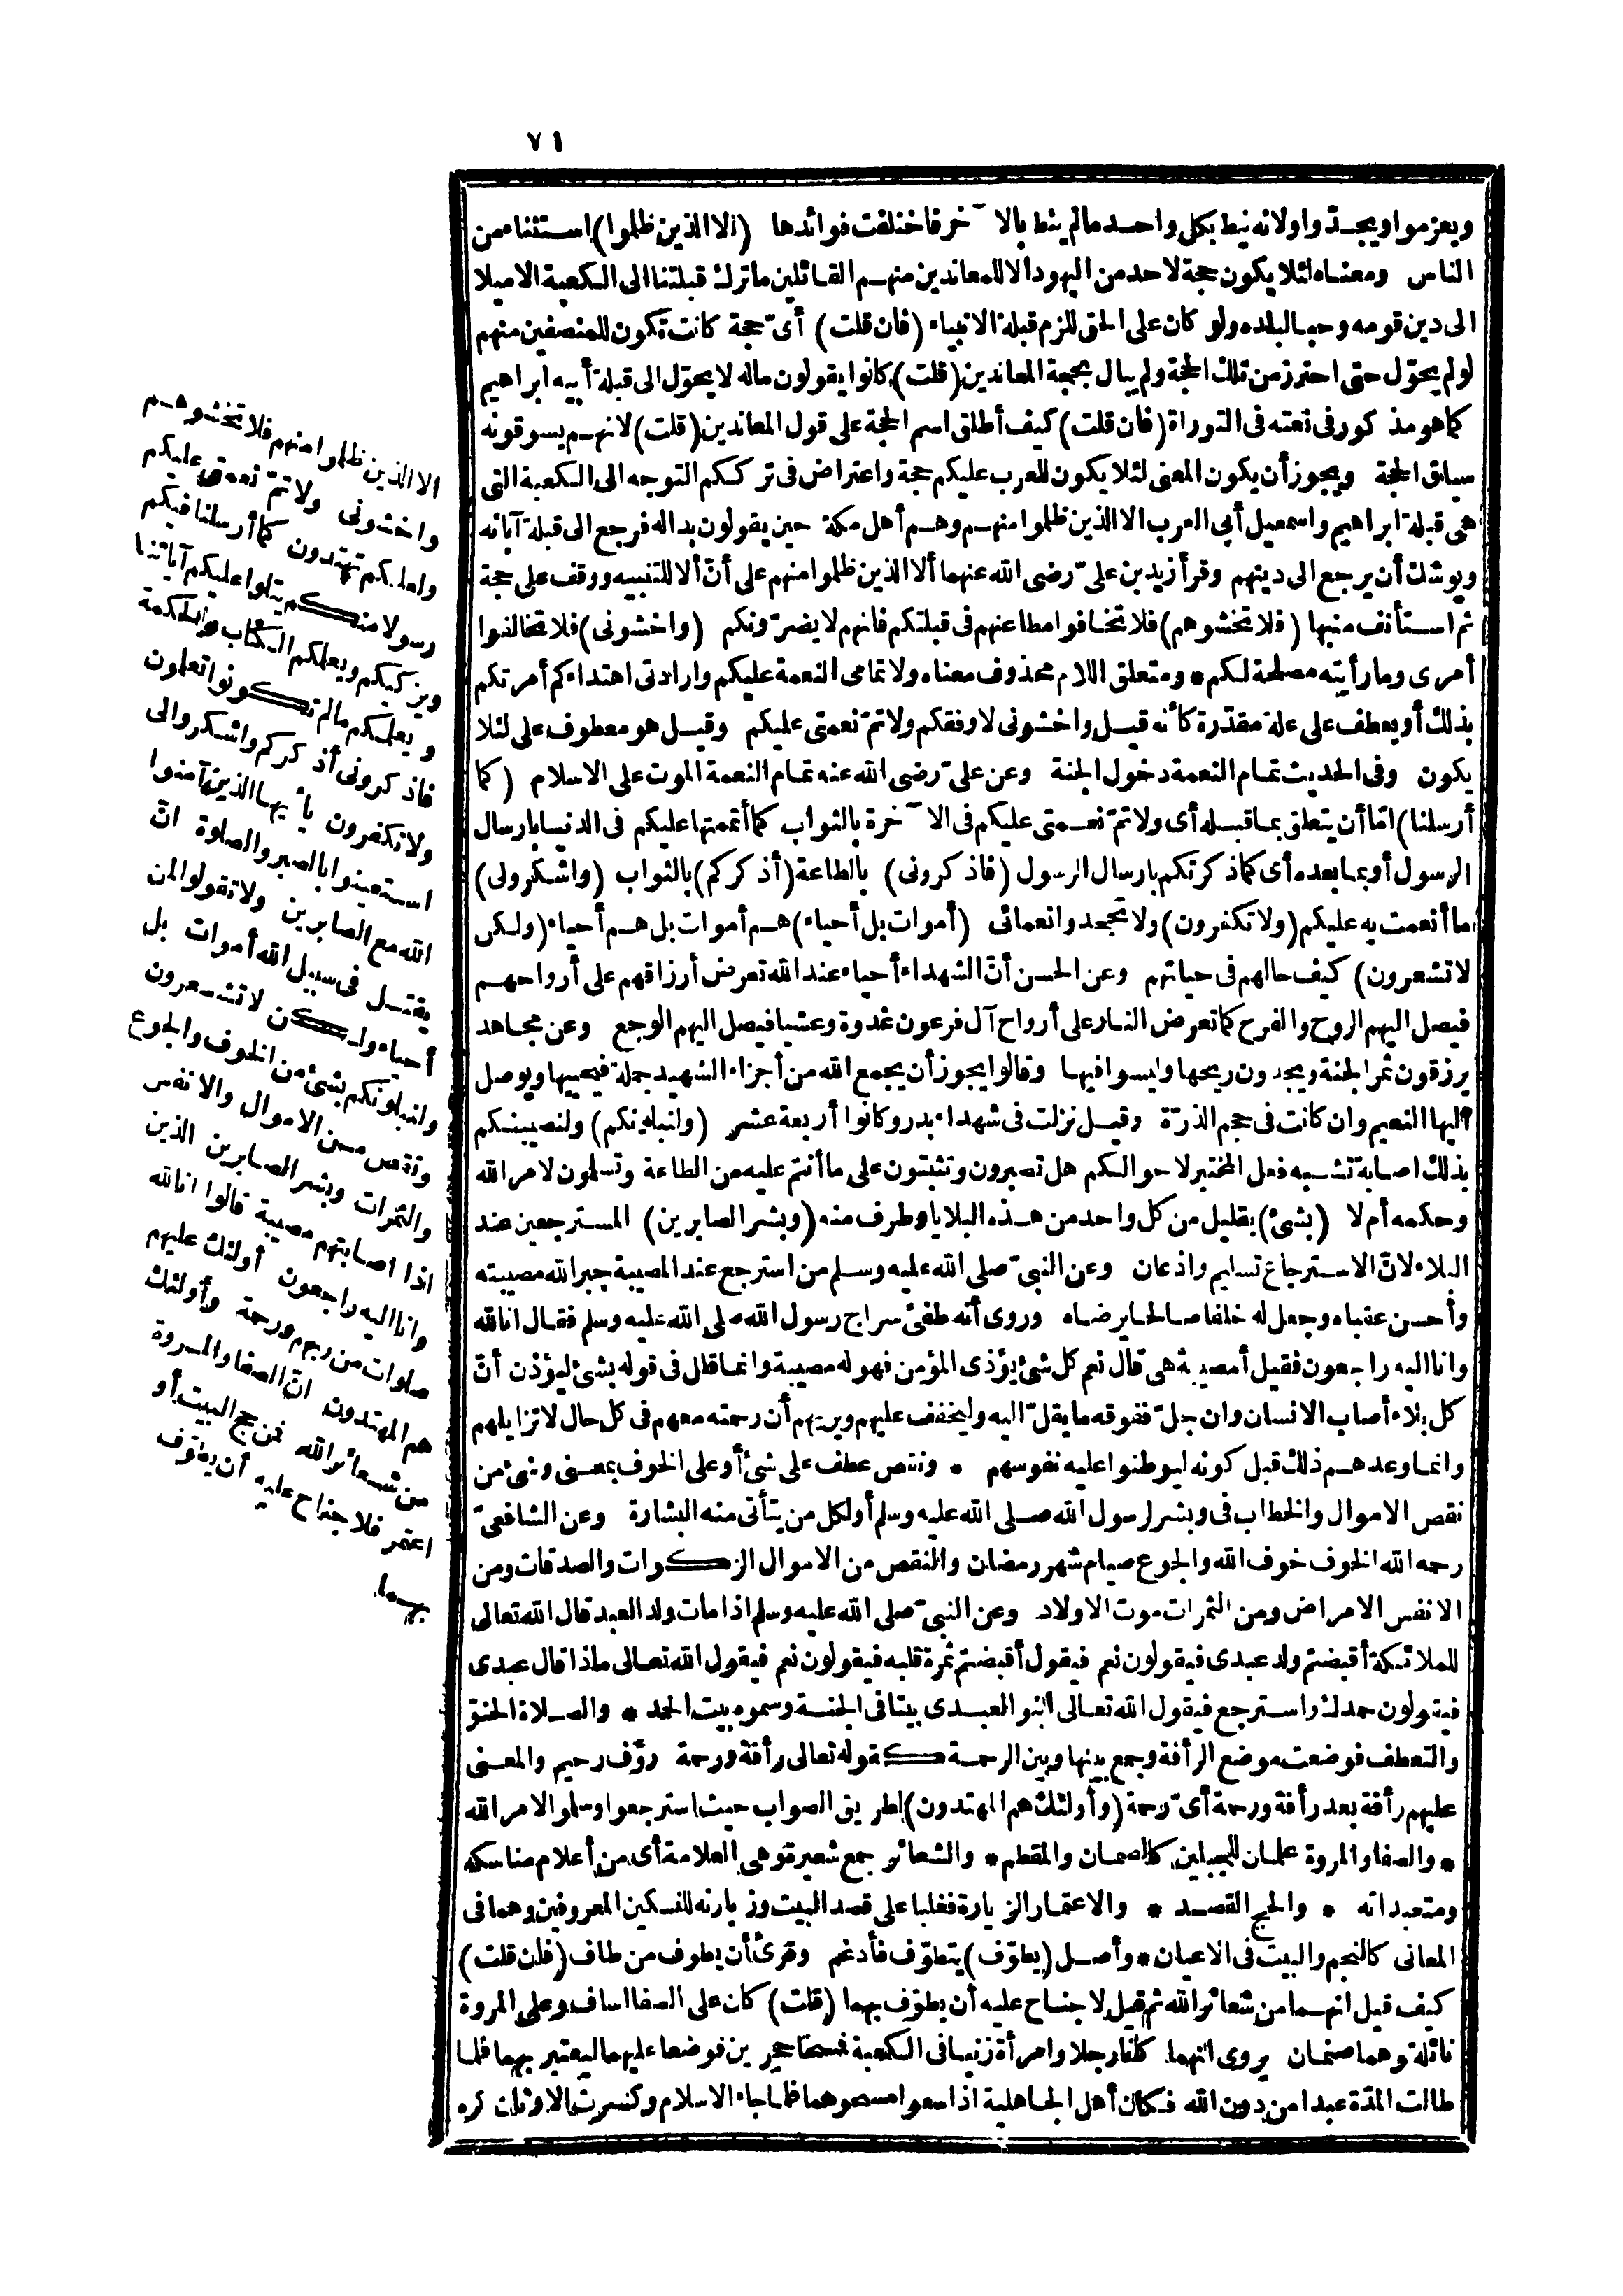 ٧١
ويعزموا ويجدوا ولانه نيط بكل واحد مالم ينط بالا~خر فاختلفت فوائدها (الا الذين ظلموا) استثناء من
الناس ومعناه لئلا يكون حجة لاحد من اليهود الا للمعاندين منهم القائلين ماترك قبلتنا الى الكعبة الا ميلا
الى دين قومه وحبا لبلده ولو كان على الحق للزم قبلة الانبياء (فان قلت) أىّ حجة كانت تكون للمنصفين منهم
لو لم يحوّل حتى احترز من تلك الحجة ولم يبال بحجة المعاندين (قلت) كانوا يقولون ماله لا يحوّل الى قبلة أبيه ابراهيم
كما هو مذكور فى نعته فى التوراة (فان قلت) كيف أطلق اسم الحجة على قول المعاندين (قلت) لانهم يسوقونه
سياق الحجة ويجوز أن يكون المعنى لئلا يكون للعرب عليكم حجة واعتراض فى ترككم التوجه الى الكعبة التى
هى قبلة ابراهيم واسمعيل أبى العرب الا الذين ظلموا منهم وهم أهل مكة حين يقولون بداله فرجع الى قبلة آبائه
ويوشك أن يرجع الى دينهم وقرأ زيد بن علىّ رضى الله عنهما ألا الذين ظلموا منهم على أنّ ألا للتنبيه ووقف على حجة
ثم استأنف منبها (فلا تخشوهم) فلا تخافوا مطاعنهم فى قبلتكم فانهم لا يضرّونكم (واخشونى) فلا تخالفوا
أمرى وما رأيته مصلحة لكم * ومتعلق اللام محذوف معناه ولاتمامى النعمة عليكم وارادتى اهتداءكم أمرتكم
بذلك أو يعطف على علة مقدّرة كأنه قيل واخشونى لاوفقكم ولاتمّ نعمتى عليكم وقيل هو معطوف على لئلا
يكون وفى الحديث تمام النعمة دخول الجنة وعن علىّ رضى الله عنه تمام النعمة الموت على الاسلام (كما
أرسلنا) امّا أن يتعلق بما قبله أى ولاتمّ نعمتى عليكم فى الا~خرة بالثواب كما أتممتها عليكم فى الدنيا بارسال
الرسول أو بما بعده أى كما ذكرتكم بارسال الرسول (فاذكرونى) بالطاعة (أذكركم) بالثواب (واشكروالى)
ما أنعمت به عليكم (ولا تكفرون) ولا تجحدوا نعمائى (أموات بل أحياء) هم أموات بل هم أحياء (ولكن
لا تشعرون) كيف حالهم فى حياتهم وعن الحسن أنّ الشهداء أحياء عند الله تعرض أرزاقهم على أرواحهم
فيصل اليهم الروح والفرح كما تعرض النار على أرواح آل فرعون غدوة وعشيا فيصل اليهم الوجع وعن مجاهد
يرزقون ثمر الجنة ويجدون ريحها وليسوا فيها وقالوا يجوز أن يجمع الله من أجزاء الشهيد جملة فيحييها ويوصل
اليها النعيم وان كانت فى حجم الذرّة وقيل نزلت فى شهداء بدر وكانوا أربعة عشر (ولنبلونكم) ولنصيبنكم
بذلك اصابة تشبه فعل المختبر لاحوالكم هل تصبرون وتثبتون على ما أنتم عليه من الطاعة وتسلمون لامر الله
وحكمه أم لا (بشئ) بقليل من كل واحد من هذه البلايا وطرف منه (وبشر الصابرين) المسترجعين عند
البلاء لانّ الاسترجاع تسليم واذعان وعن النبىّ صلى الله عليه وسلم من استرجع عند المصيبة جبر الله مصيبته
وأحسن عقباه وجعل له خلفا صالحا يرضاه وروى أنه طفئ سراج رسول الله صلى الله عليه وسلم فقال انا لله
وانا اليه راجعون فقيل أمصيبة هى قال نعم كل شئ يؤذى المؤمن فهو له مصيبة وانما قلل فى قوله بشئ ليؤذن أنّ
كل بلاء أصاب الانسان وان جلّ ففوقه ما يقلّ اليه وليخفف عليهم ويريهم أن رحمته معهم فى كل حال لا تزايلهم
وانما وعدهم ذلك قبل كونه ليوطنوا عليه نفوسهم * ونقص عطف على شئ أو على الخوف بمعنى وشئ من
نقص الاموال والخطاب فى وبشر لرسول الله صلى الله عليه وسلم أو لكل من يتأتى منه البشارة وعن الشافعىّ
رحمه الله الخوف خوف الله والجوع صيام شهر رمضان والنقص من الاموال الزكوات والصدقات ومن
الانفس الامراض ومن الثمرات موت الاولاد وعن النبىّ صلى الله عليه وسلم اذا مات ولد العبد قال الله تعالى
للملائكة أقبضتم ولد عبدى فيقولون نعم فيقول أقبضتم ثمرة قلبه فيقولون نعم فيقول الله تعالى ماذا قال عبدى
فيقولون حمدك واسترجع فيقول الله تعالى ابنوا لعبدى بيتا فى الجنة وسموه بيت الحمد * والصلاة الحنوّ
والتعطف فوضعت موضع الرأفة وجمع بينها وبين الرحمة كقوله تعالى رأفة ورحمة رؤف رحيم والمعنى
عليهم رأفة بعد رأفة ورحمة أىّ رحمة (وأولئك هم المهتدون) لطريق الصواب حيث استرجعوا وسلموا لامر الله
* والصفا والمروة علمان للجبلين كالصمان والمقطم * والشعائر جمع شعيرة وهى العلامة أى من أعلام مناسكه
ومتعبداته * والحج القصد * والاعتمار الزيارة فغلبا على قصد البيت وزيارته للنسكين المعروفين وهما فى
المعانى كالنجم والبيت فى الاعيان * وأصل (يطوّف) يتطوّف فأدغم وقرئ أن يطوف من طاف (فان قلت)
كيف قيل انهما من شعائر الله ثم قيل لا جناح عليه أن يطوّف بهما (قلت) كان على الصفا اساف وعلى المروة
نائلة وهما صنمان يروى انهما كانا رجلا وامرأة زنيا فى الكعبة فمسخا حجرين فوضعا عليهما ليعتبر بهما فلما
طالت المدّة عبدا من دون الله فكان أهل الجاهلية اذا سعوا مسحوهما فلما جاء الاسلام وكسرت الاوثان كره
الا الذين ظلموا منهم فلا تخشوهم
واخشونى ولاتمّ نعمتى عليكم
ولعلكم تهتدون كما أرسلنا فيكم
رسولا منكم يتلوا عليكم آياتنا
ويزكيكم ويعلمكم الكتاب والحكمة
ويعلمكم مالم تكونوا تعلمون
فاذكرونى أذكركم واشكروالى
ولا تكفرون يأيها الذين آمنوا
استعينوا بالصبر والصلوة انّ
الله مع الصابرين ولا تقولوا لمن
يقتل فى سبيل الله أموات بل
أحياء ولكن لا تشعرون
ولنبلونكم بشئ من الخوف والجوع
ونقص من الاموال والانفس
والثمرات وبشر الصابرين الذين
اذا اصابتهم مصيبة قالوا انا لله
وانا اليه راجعون أولئك عليهم
صلوات من ربهم ورحمة وأولئك
هم المهتدون انّ الصفا والمروة
من شعائر الله فمن حج البيت أو
اعتمر فلا جناح عليه أن يطوّف
بهما